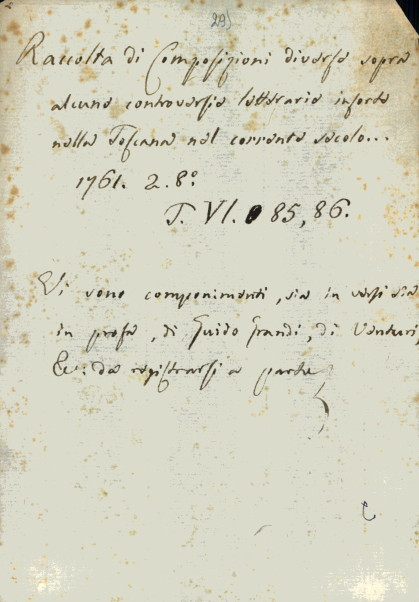 29)
Raccolta di Composizioni diverse sopra
alcune controversie letterarie insorte
nella Toscana nel corrente secolo...
1761. 2. 8.º
T. VI. 85, 86.
Vi sono componimenti, sia in versi sia
in prosa, di Guido Grandi, di Venturi,
&c. da registrarsi a parte